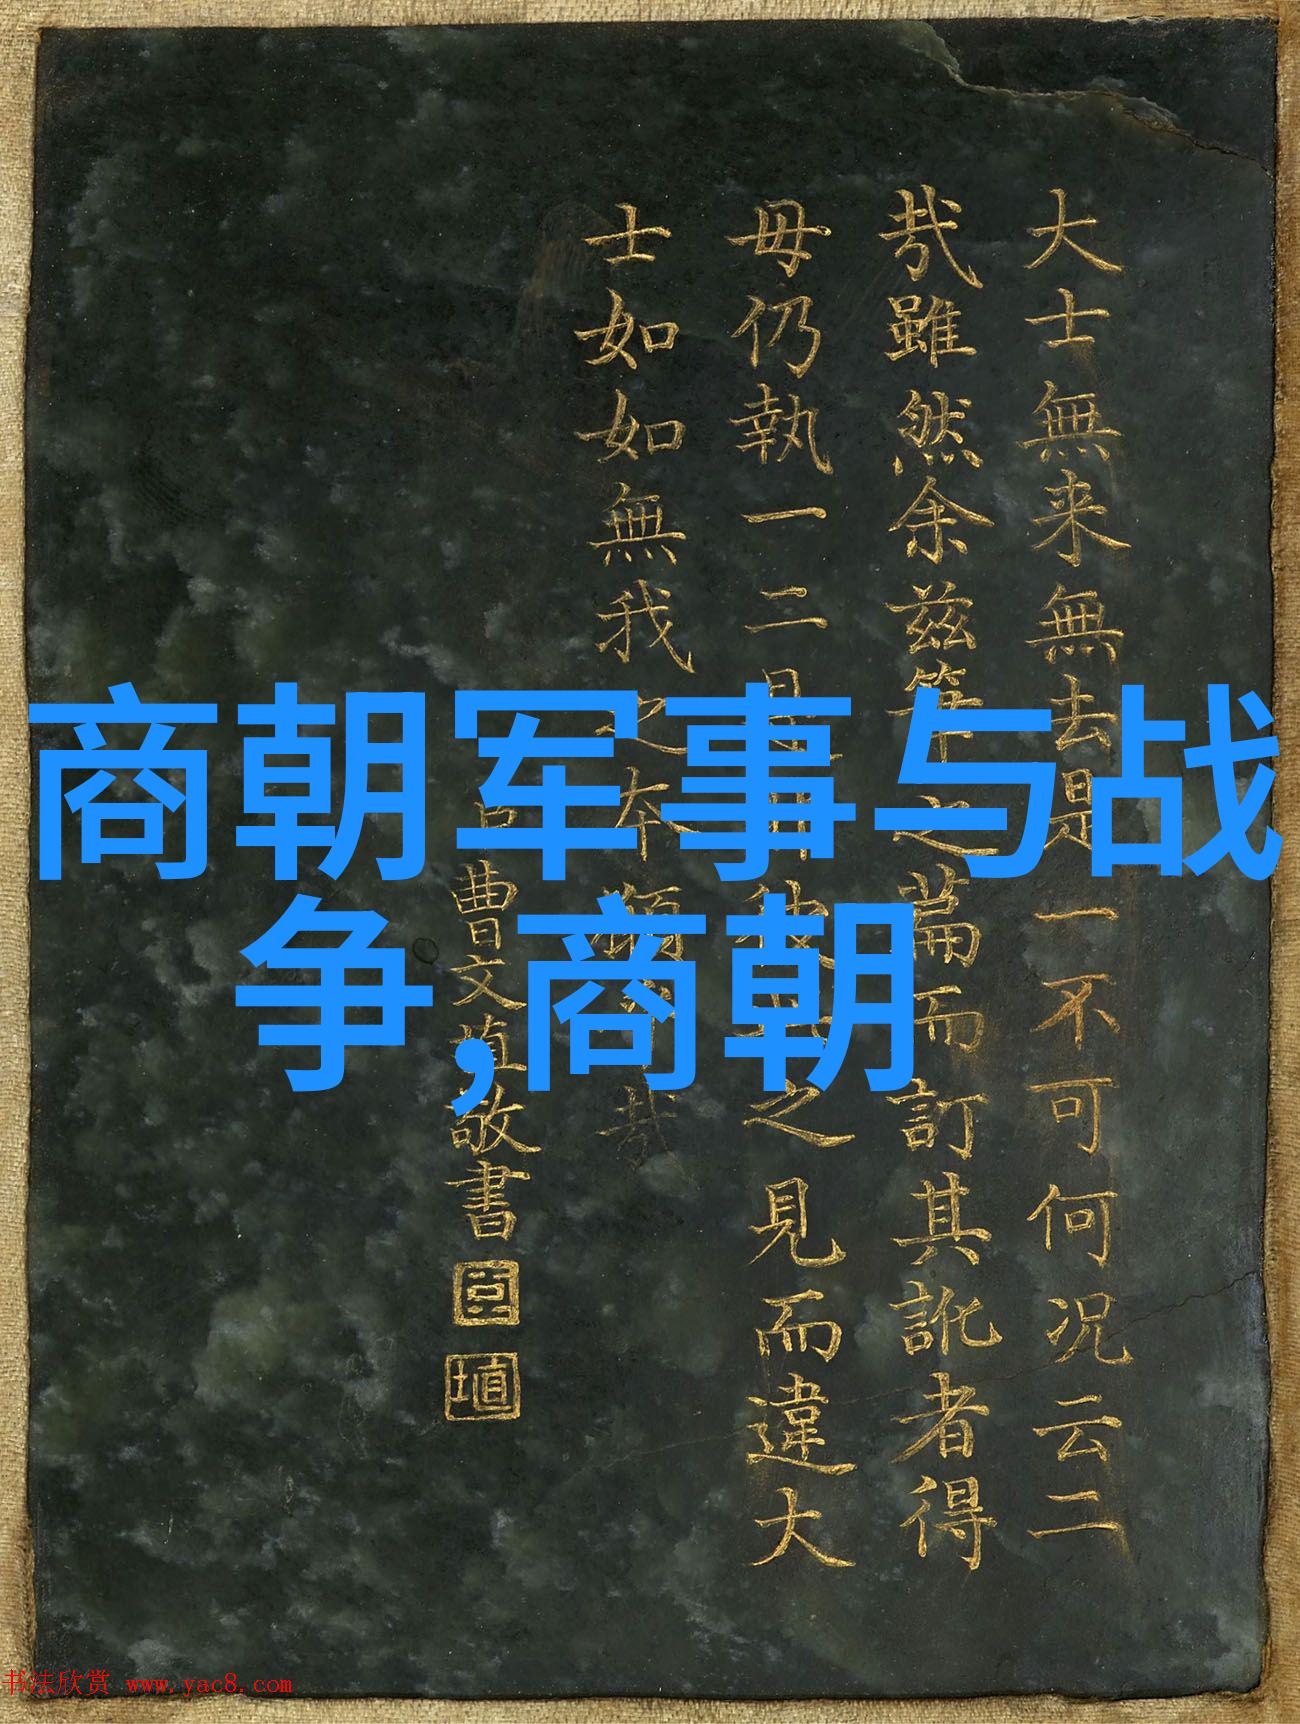 商朝军事与战
争,商朝
大士無来無去是一不可何況云二
哉雖然余兹笄之篇而訂其訛者得
毋仍執一二見之見而違大
士如如無我之本願哉
臣曹文埴敬書
臣
埴
书法欣赏 www.yac8.com